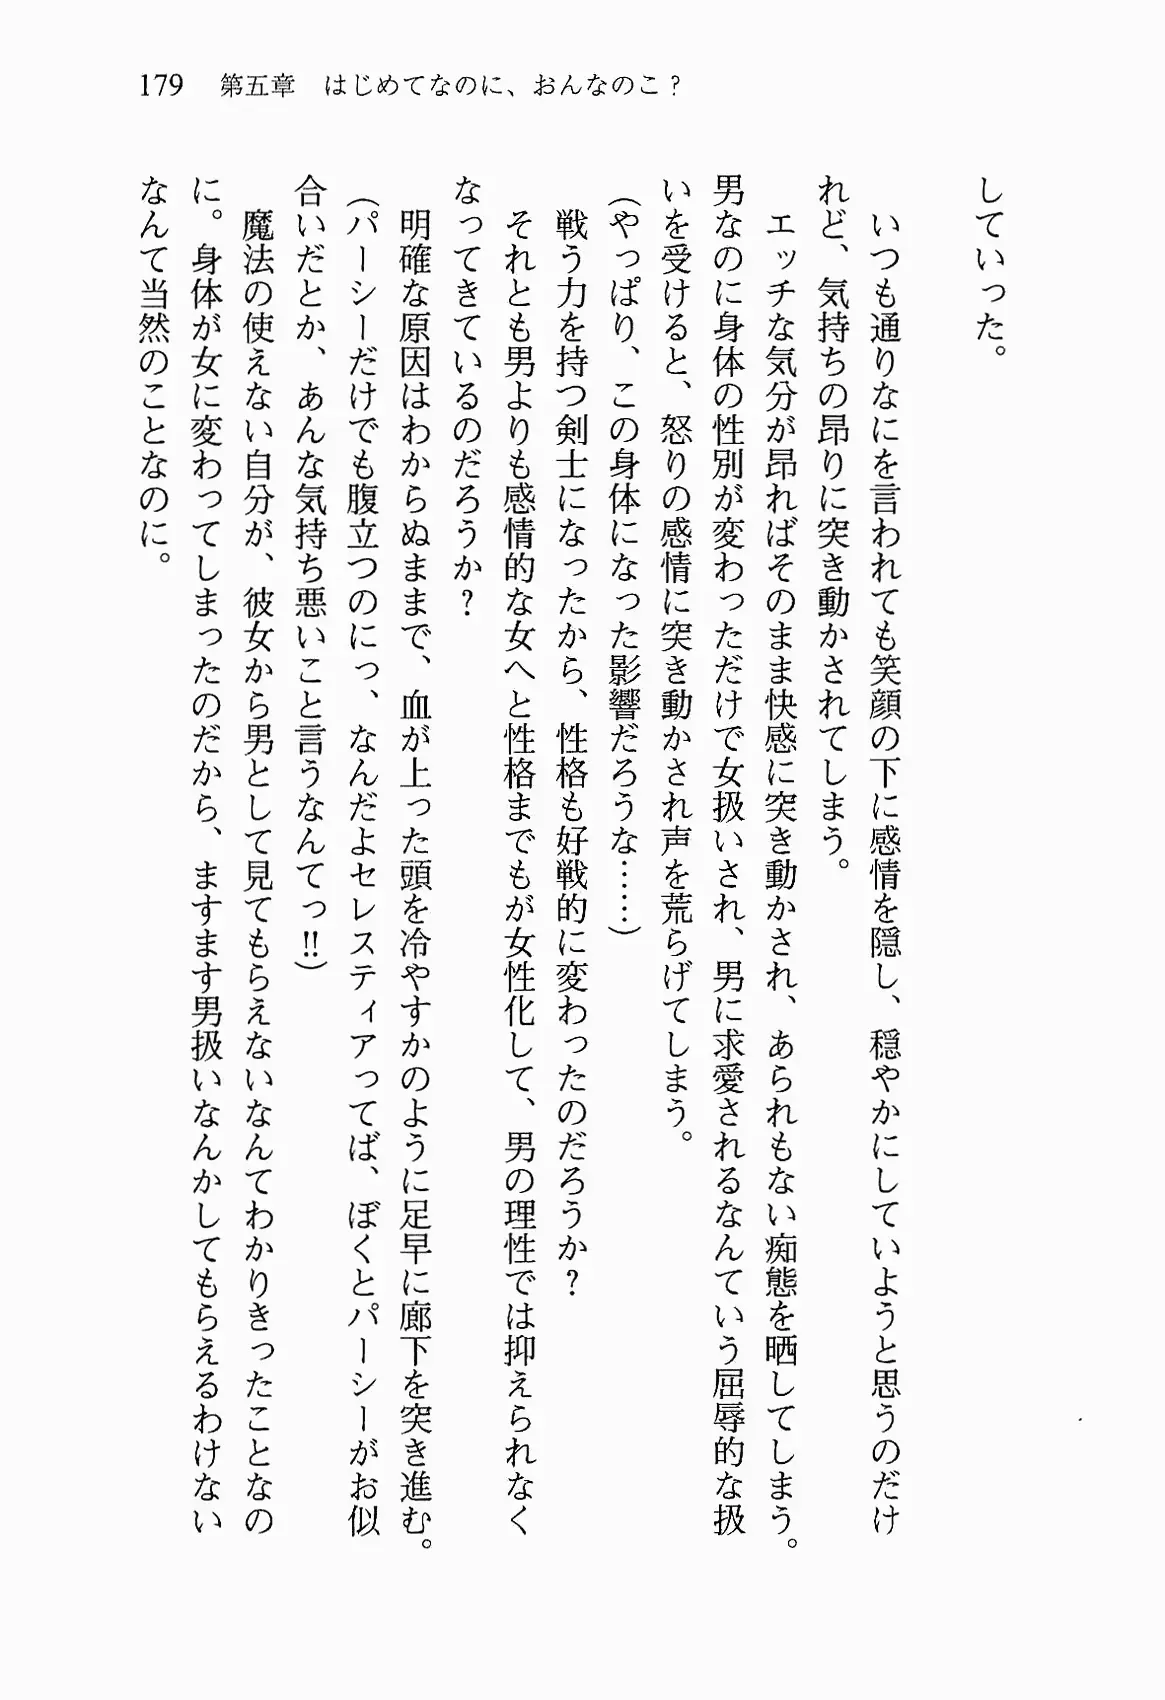 179　第五章　はじめてなのに、おんなのこ？
していった。
いつも通りなにを言われても笑顔の下に感情を隠し、穏やかにしていようと思うのだけ
れど、気持ちの昂りに突き動かされてしまう。
エッチな気分が昂ればそのまま快感に突き動かされ、あられもない痴態を晒してしまう。
男なのに身体の性別が変わっただけで女扱いされ、男に求愛されるなんていう屈辱的な扱
いを受けると、怒りの感情に突き動かされ声を荒らげてしまう。
（やっぱり、この身体になった影響だろうな……）
戦う力を持つ剣士になったから、性格も好戦的に変わったのだろうか？
それとも男よりも感情的な女へと性格までもが女性化して、男の理性では抑えられなく
なってきているのだろうか？
明確な原因はわからぬままで、血が上った頭を冷やすかのように足早に廊下を突き進む。
（パーシーだけでも腹立つのにっ、なんだよセレスティアってば、ぼくとパーシーがお似
合いだとか、あんな気持ち悪いこと言うなんてっ!!）
魔法の使えない自分が、彼女から男として見てもらえないなんてわかりきったことなの
に。身体が女に変わってしまったのだから、ますます男扱いなんかしてもらえるわけない
なんて当然のことなのに。